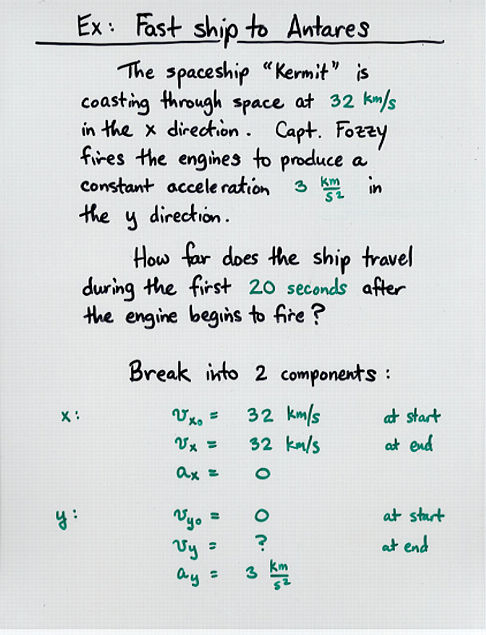 Ex: Fast ship to Antares
The spaceship "Kermit" is
coasting through space at 32 km/s
in the x direction. Capt. Fozzy
fires the engines to produce a
constant acceleration 3 km/s² in
the y direction.
How far does the ship travel
during the first 20 seconds after
the engine begins to fire?
Break into 2 components:
x: vx₀ = 32 km/s at start
vx = 32 km/s at end
ax = 0
y: vy₀ = 0 at start
vy = ? at end
ay = 3 km/s²